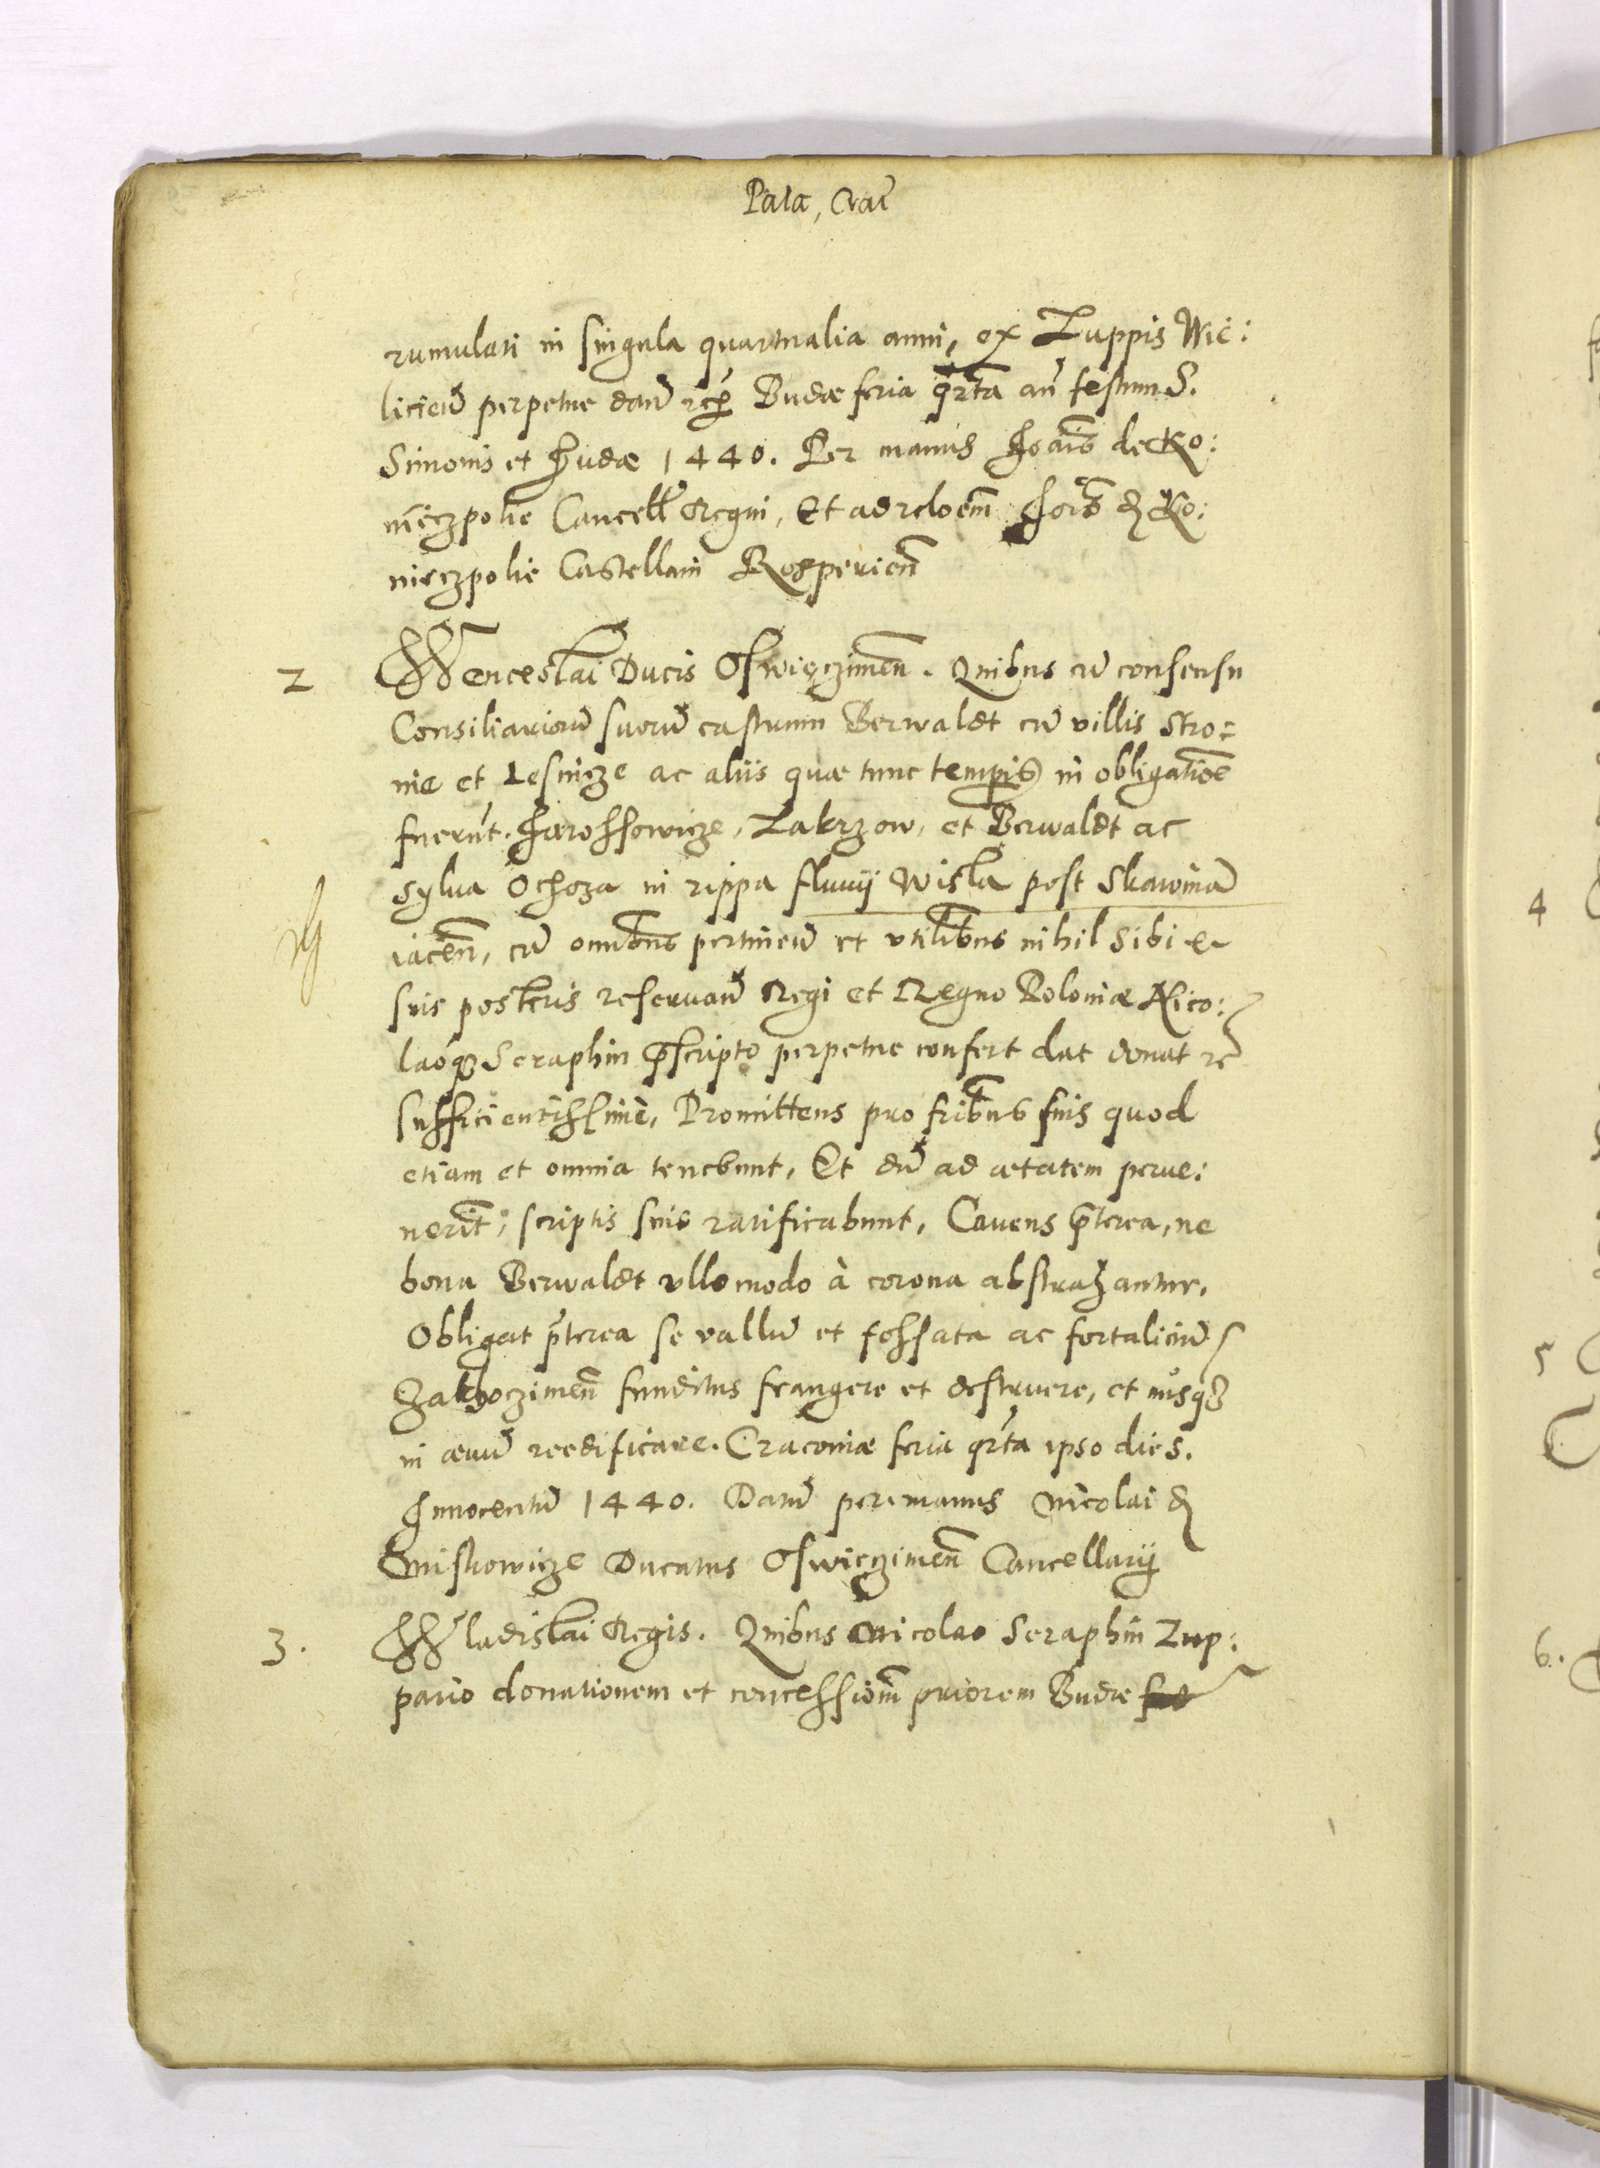 Pala, Craĉ
rumulati in singula quartualia anni, ex Zuppis Wie:
liciēn̄ perpetue dan̄ etc̄ Budæ feria qr̄ta an̄ festum S.
Simonis et Judæ 1440. Per manus Joāis de Ko:
nieczpolie Cancell̄ Regni, Et ad rcloēm Joīs d Ko:
nieczpolie Castellani Rosperien̄
2 Wenceslai Ducis Osswięczimen̄. Quibus cū consensu
Consiliariorū suorū castrum Berwaldt cū villis Stro=
nie et Lesnicze ac aliis quæ tunc temp̄is in obligatiōe
fuerūt. Jarossowicze, Zakrzow, et Berwaldt ac
sylua Ochoza in rippa fluuij Wisla post Skawinā
iacen̄, cū omībus pertinen̄ et vtilībus nihil sibi et
suis posteris reseruan̄ Regi et Regno Poloniæ Nico:
laoq; Seraphin p̄scripto perpetue confert dat donat etc̄
sufficientissime, Promittens pro fr̄ibus suis quod
etiam et omnia tenebunt, Et dū ad ætatem perue:
nerīt, scriptis suis ratificabunt, Cauens p̄terea, ne
bona Berwaldt vllo modo à corona abstrahantur.
Obligat p̄terea se vallū et fossata ac fortaliciū
Zathoczimen̄ funditus frangere et destruere, et nusq;
in æuū reedificare. Cracouiæ feria qr̄ta ipso die S.
Innocentū 1440. Datū per manus Nicolai d
Gnistrowicze Ducatus Osswięczimen̄ Cancellarij
3. Wladislai Regis. Quibus Nicolao Seraphin Zup:
pario donationem et concessionem̄ priorem Budæ
4
5
6.